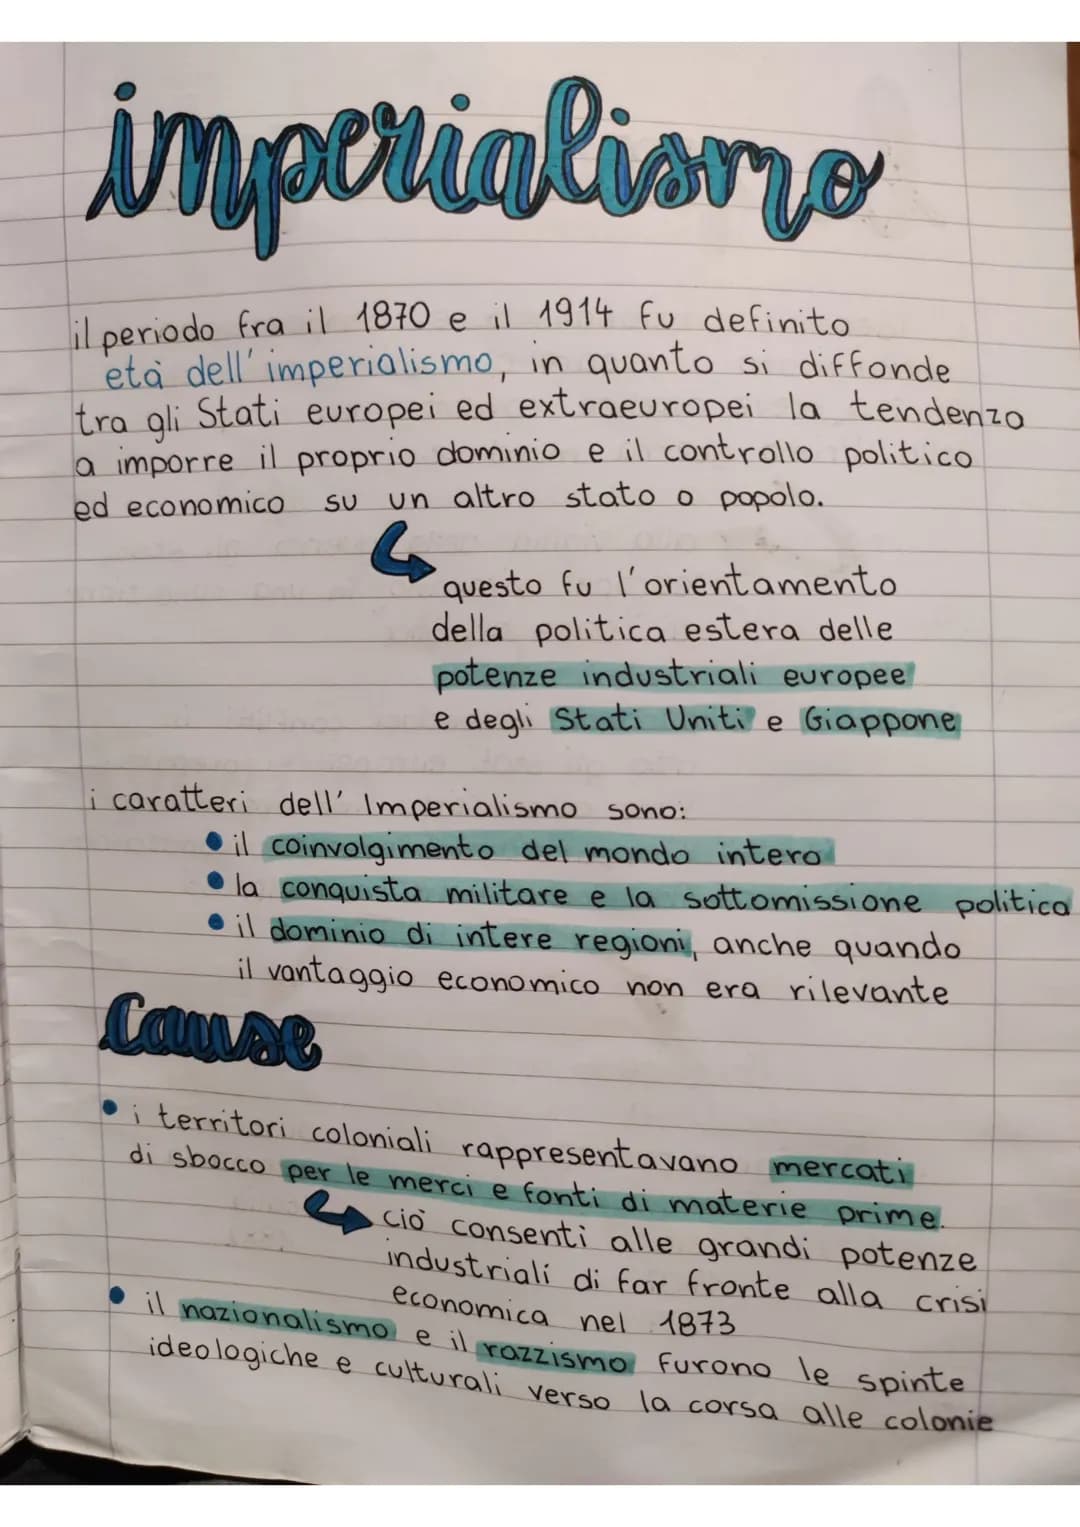 imperialismo
il periodo fra il 1870 e il 1914 fu definito
età dell'imperialismo, in quanto si diffonde
tra gli Stati europei ed extraeuropei la tendenza
a imporre il proprio dominio e il controllo politico
ed economico su un altro stato o popolo.
questo fu l'orientamento
della politica estera delle
potenze industriali europee
e degli Stati Uniti e Giappone
i caratteri dell' Imperialismo sono:
• il coinvolgimento del mondo intero
• la conquista militare e la sottomissione politica
• il dominio di intere regioni, anche quando
il vantaggio economico non era rilevante
Cause
• i territori coloniali rappresentavano mercati
di sbocco per le merci e fonti di materie prime.
ciò consentì alle grandi potenze
industriali di far fronte alla crisi
economica nel 1873
• il nazionalismo e il razzismo furono le spinte
ideologiche e culturali verso la corsa alle colonie